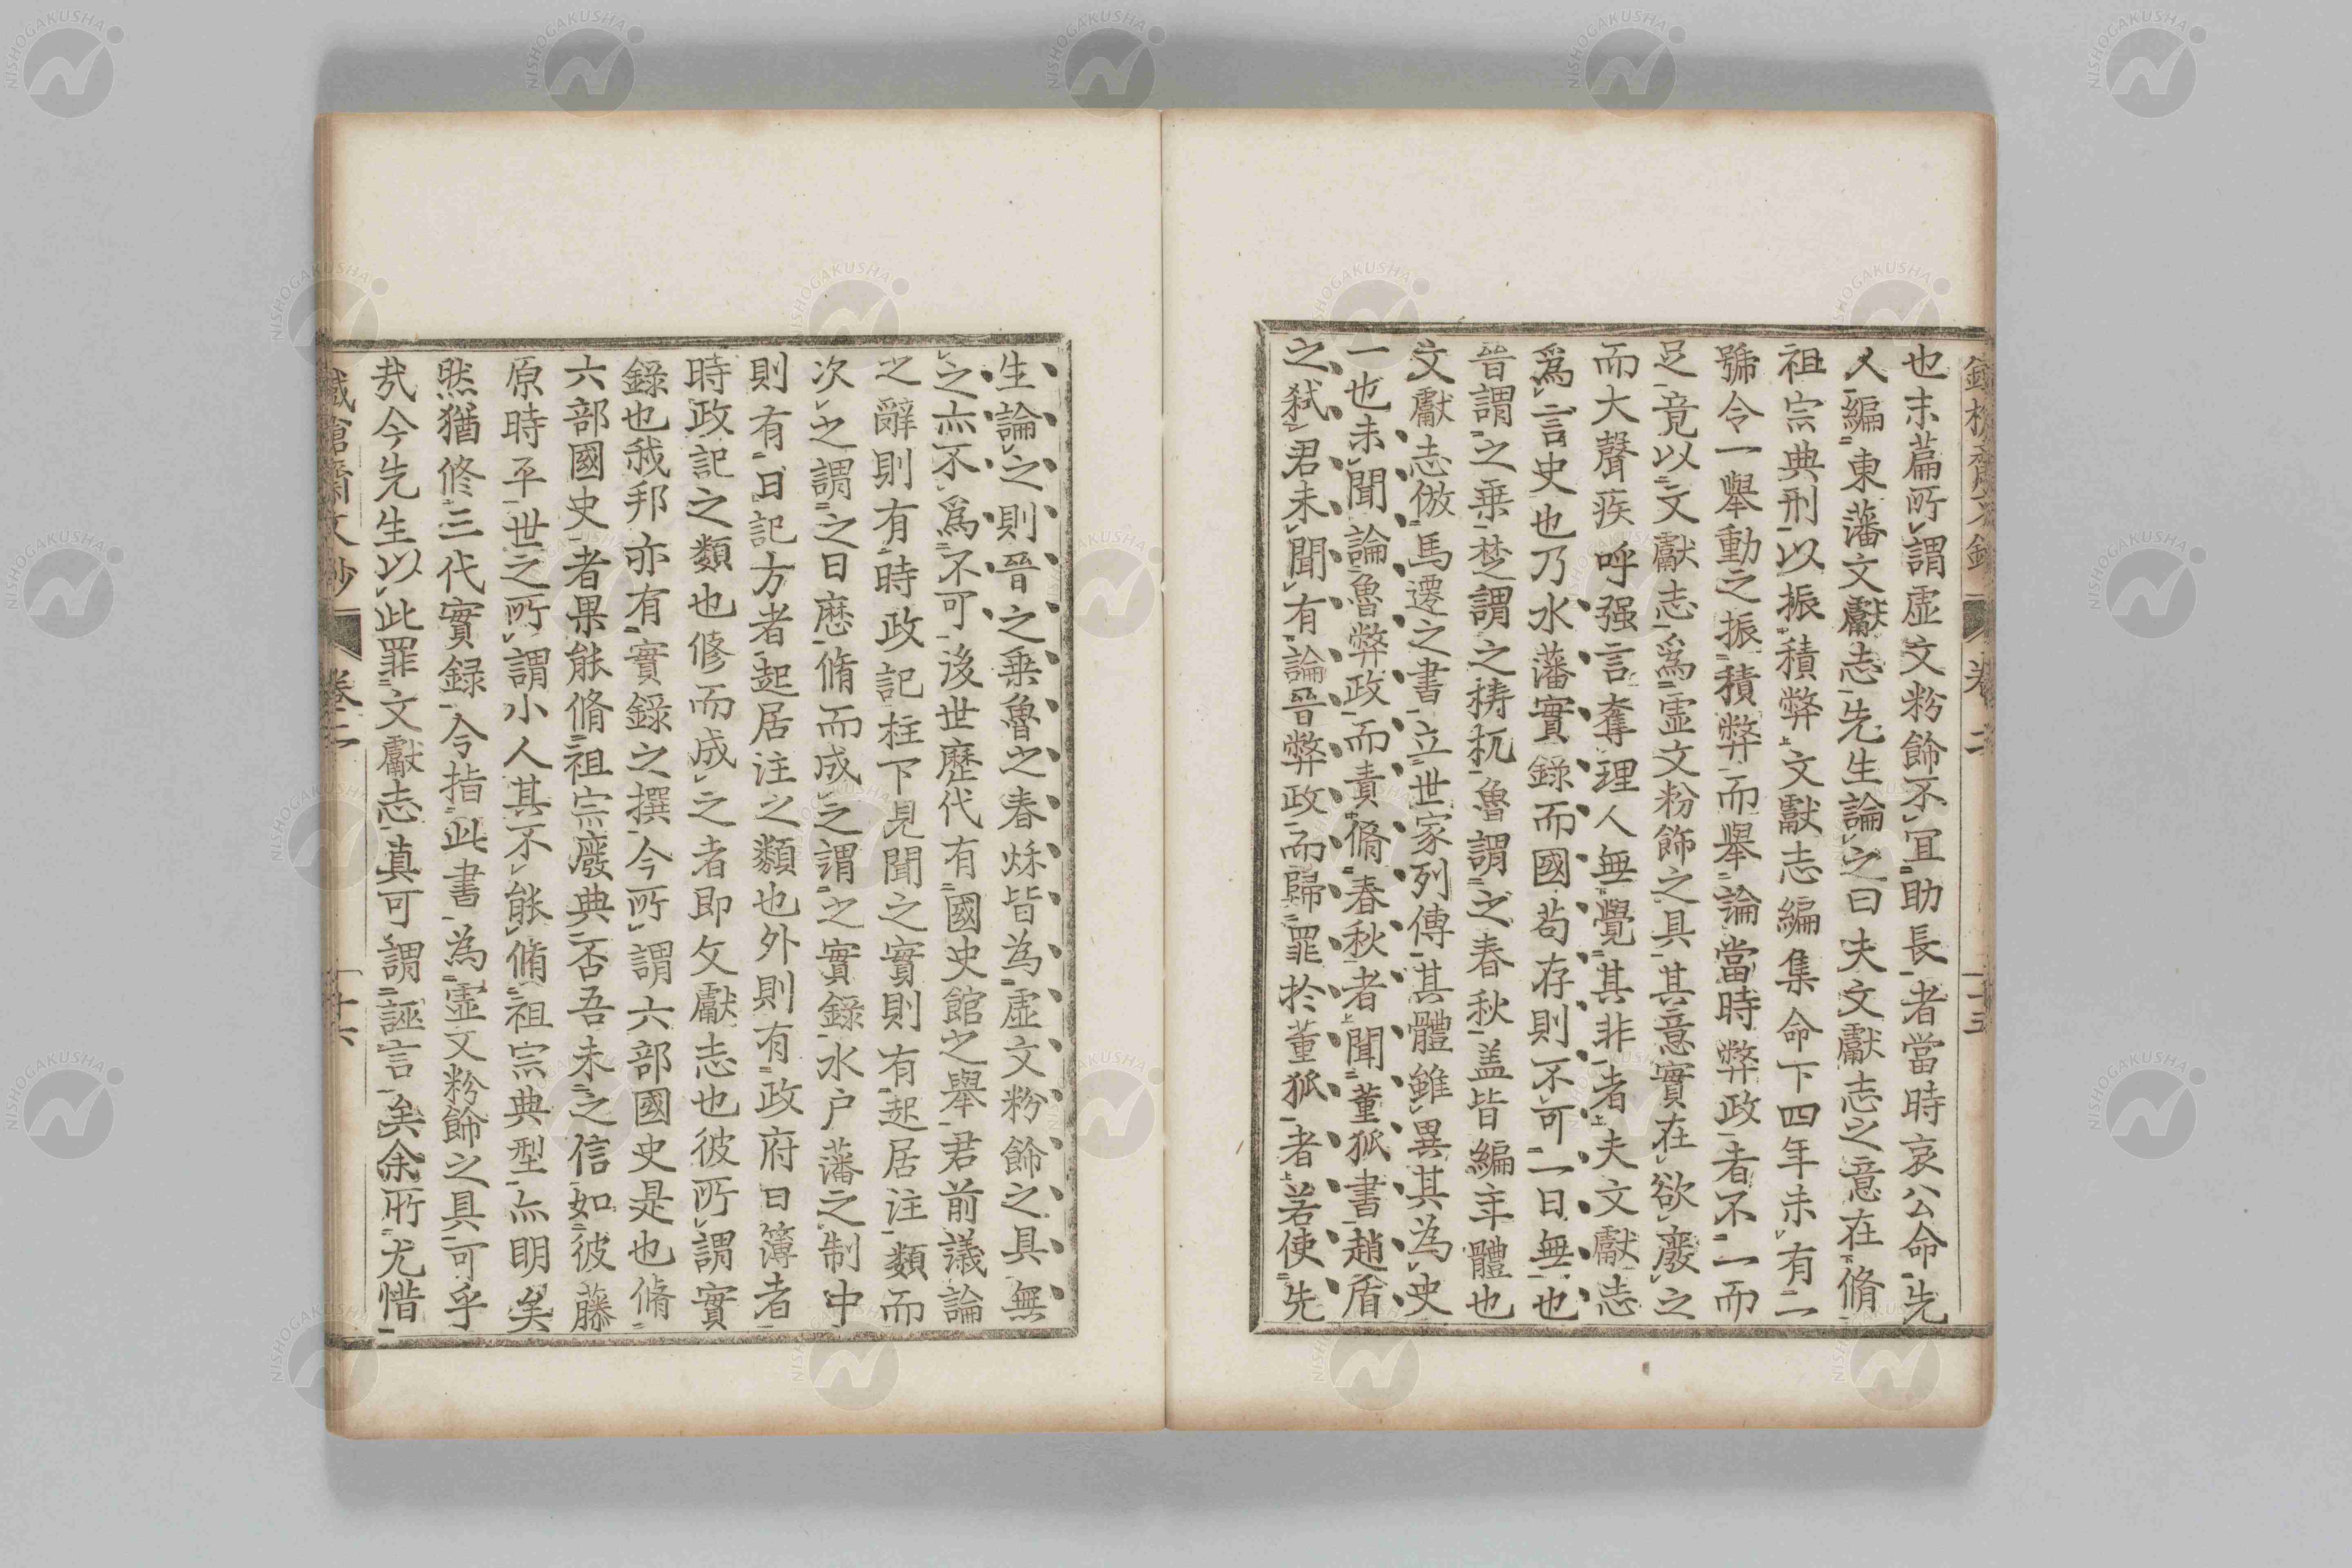 也末篇所謂虛文粉餙不冝助長者當時哀公命先
人編東藩文獻志先生論之曰夫文獻志之意在脩
祖宗典刑以振積弊文獻志編集命下四年未有二
號令一舉動之振積弊而舉論當時弊政者不一而
足竟以文獻志爲虛文粉飾之具其意實在欲廢之
而大聲疾呼强言奪理人無覺其非者夫文獻志
爲言史也乃水藩實錄而國苟存則不可一日無也
晉謂之乗楚謂之梼杌魯謂之春秋盖皆編年體也
文獻志倣馬遷之書立世家列傳其體雖異其為史
一也未聞論魯弊政而責脩春秋者聞董狐書趙盾
之弑君未聞有論晉弊政而歸罪於董狐者若使先
生論之則晉之乗魯之春秌皆為虛文粉餙之具無
之亦不爲不可後世歴代有國史館之舉君前議論
之辭則有時政記柱下見聞之實則有起居注類而
次之謂之日厯脩而成之謂之實錄水户藩之制中
則有日記方者起居注之類也外則有政府日簿者
時政記之類也修而成之者即文獻志也彼所謂實
錄也我邦亦有實錄之撰今所謂六部國史是也脩
六部國史者果能脩祖宗廢典否吾未之信如彼藤
原時平世之所謂小人其不能脩祖宗典型亦明矣
然猶修三代實録今指此書為虛文粉餙之具可乎
哉今先生以此罪文獻志真可謂誣言矣余所尤惜
卷二
NISHOGAKUSHA